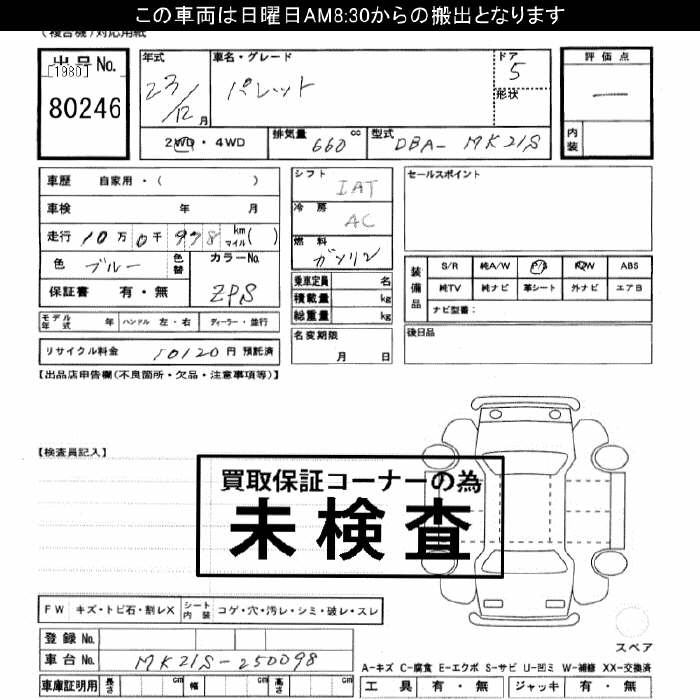 この車両は日曜日AM8:30からの搬出となります
(複合機)対応用紙
出品No.
[1980]
80246
年式
23/12月
車名・グレード
パレット
ドア
5
形状
評価点
—
内装
2WD・4WD
排気量 660 cc
型式 DBA- MK21S
車歴 自家用・( )
車検 年 月
走行 10万0千998 km マイル( )
色 ブルー
色替
カラーNo.
ZPS
保証書 有・無
シフト
IAT
冷房
AC
燃料
ガソリン
乗車定員 名
積載量 kg
総重量 kg
セールスポイント
装備品
S/R 純A/W P/S P/W ABS
純TV 純ナビ 革シート 外ナビ エアB
ナビ型番:
モデル年式 年 ハンドル 左・右 ディーラー・並行
名変期限
月 日
後日品
リサイクル料金 10120円 預託済
【出品店申告欄(不良箇所・欠品・注意事項等)】
【検査員記入】
買取保証コーナーの為
未検査
FW キズ・トビ石・割レX シート内装 コゲ・穴・汚レ・シミ・破レ・スレ
スペア
登録No.
車台No. MK21S-250098
A-キズ C-腐食 E-エクボ S-サビ U-凹ミ W-補修 XX-交換済
車庫証明用 長さ cm 幅 cm 高さ cm
工具 有・無 ジャッキ 有・無